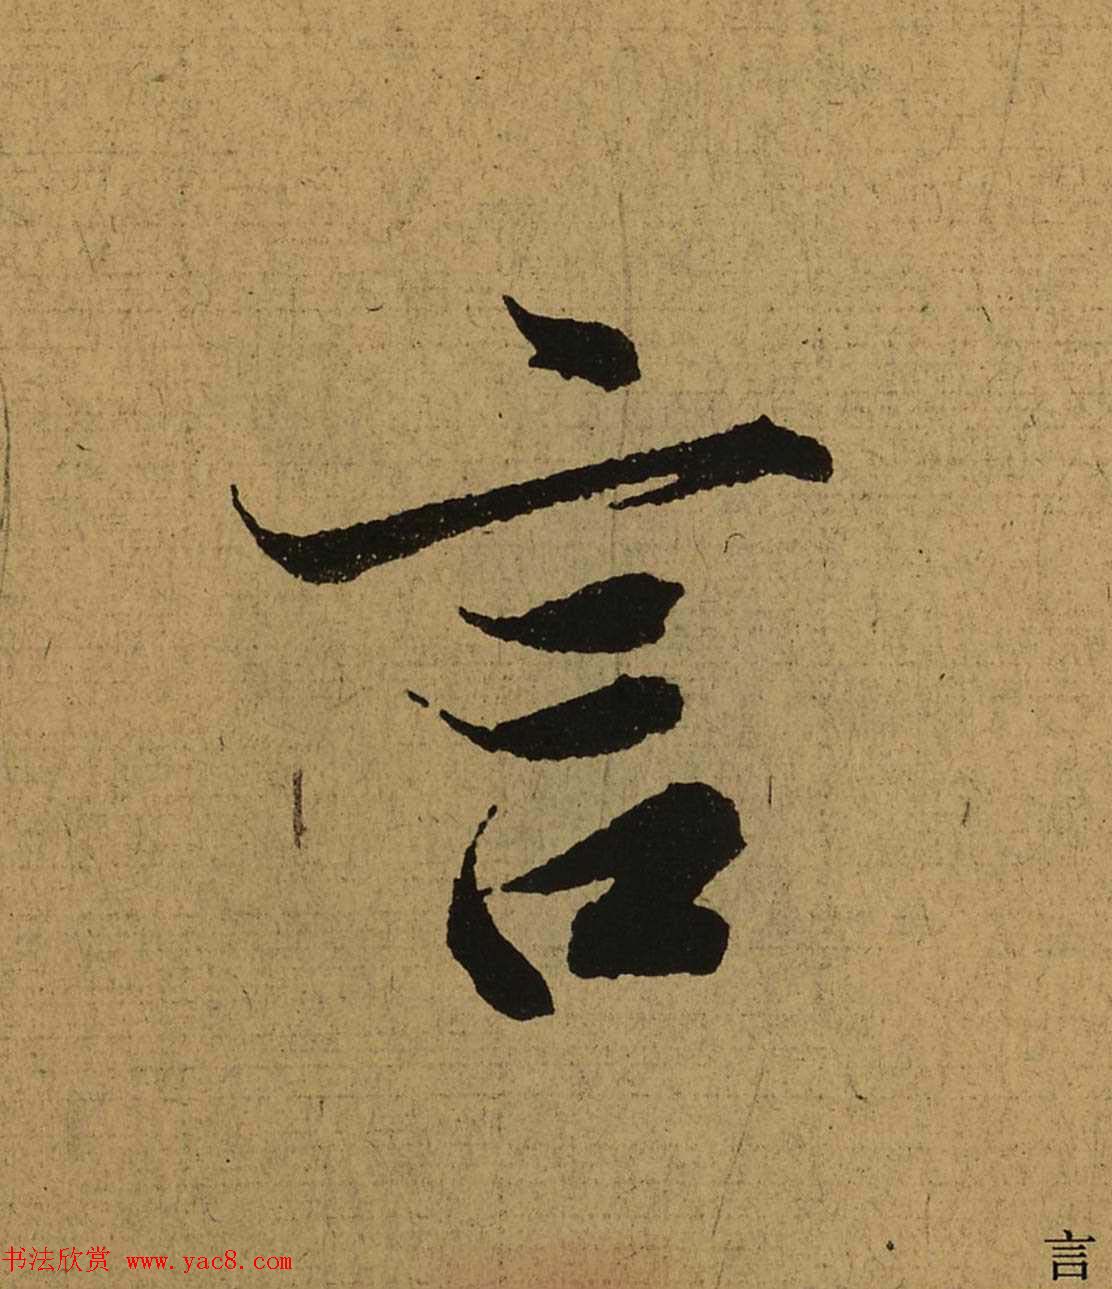 言
书法欣赏 www.yac8.com
言